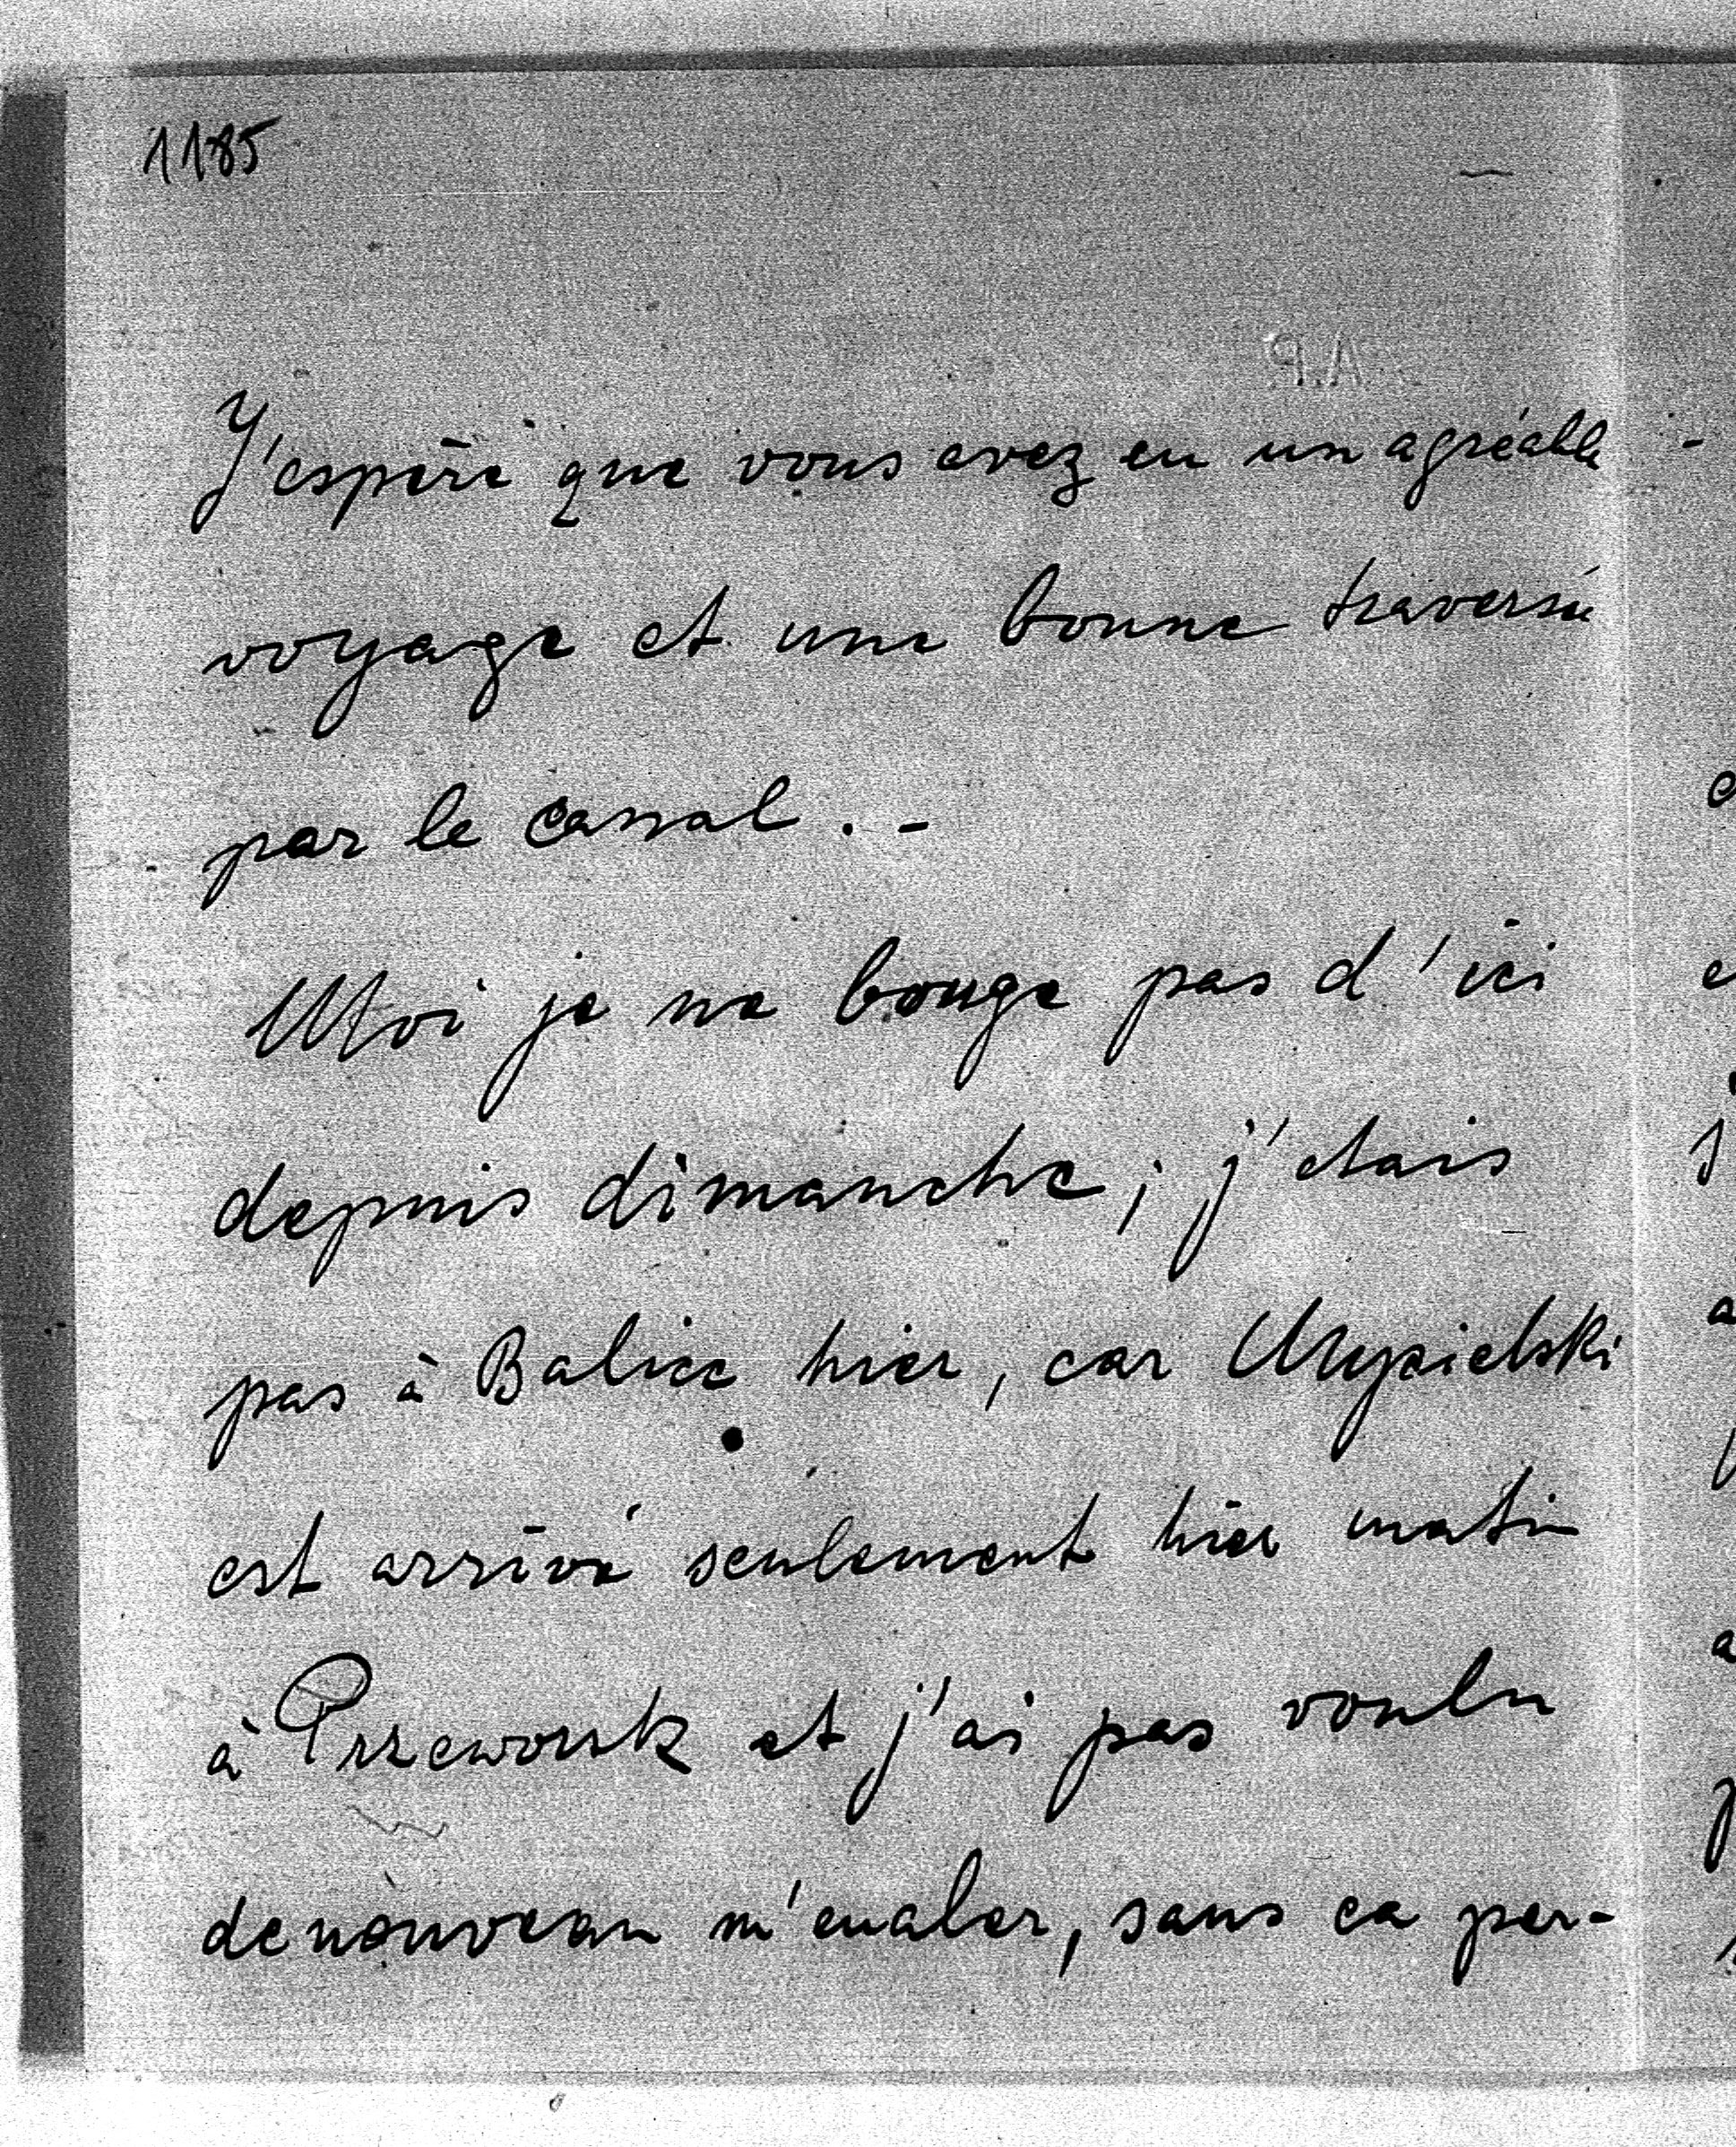 1185
A.P.
J'espère que vous avez eu un agréable
voyage et une bonne traversée
par le canal. -
Moi je ne bouge pas d'ici
depuis dimanche; j'étais
pas à Balice hier, car Mycielski
est arrivé seulement hier matin
à Przeworsk et j'ai pas voulu
de nouveau m'enaler, sans ca per-